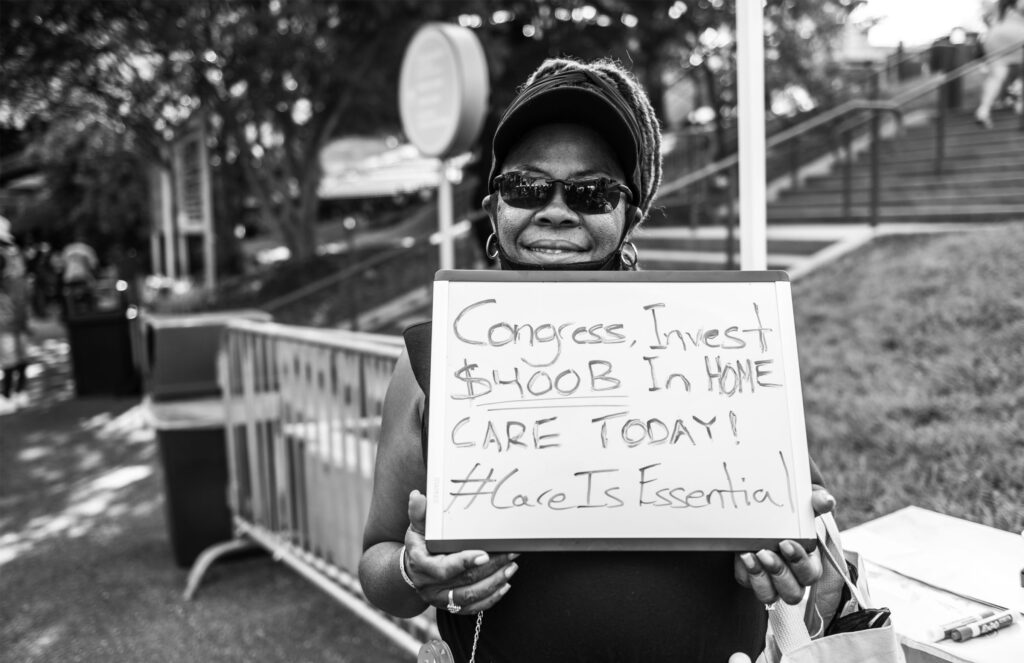 Congress, Invest
$400B In HOME
CARE TODAY!
#CareIsEssential